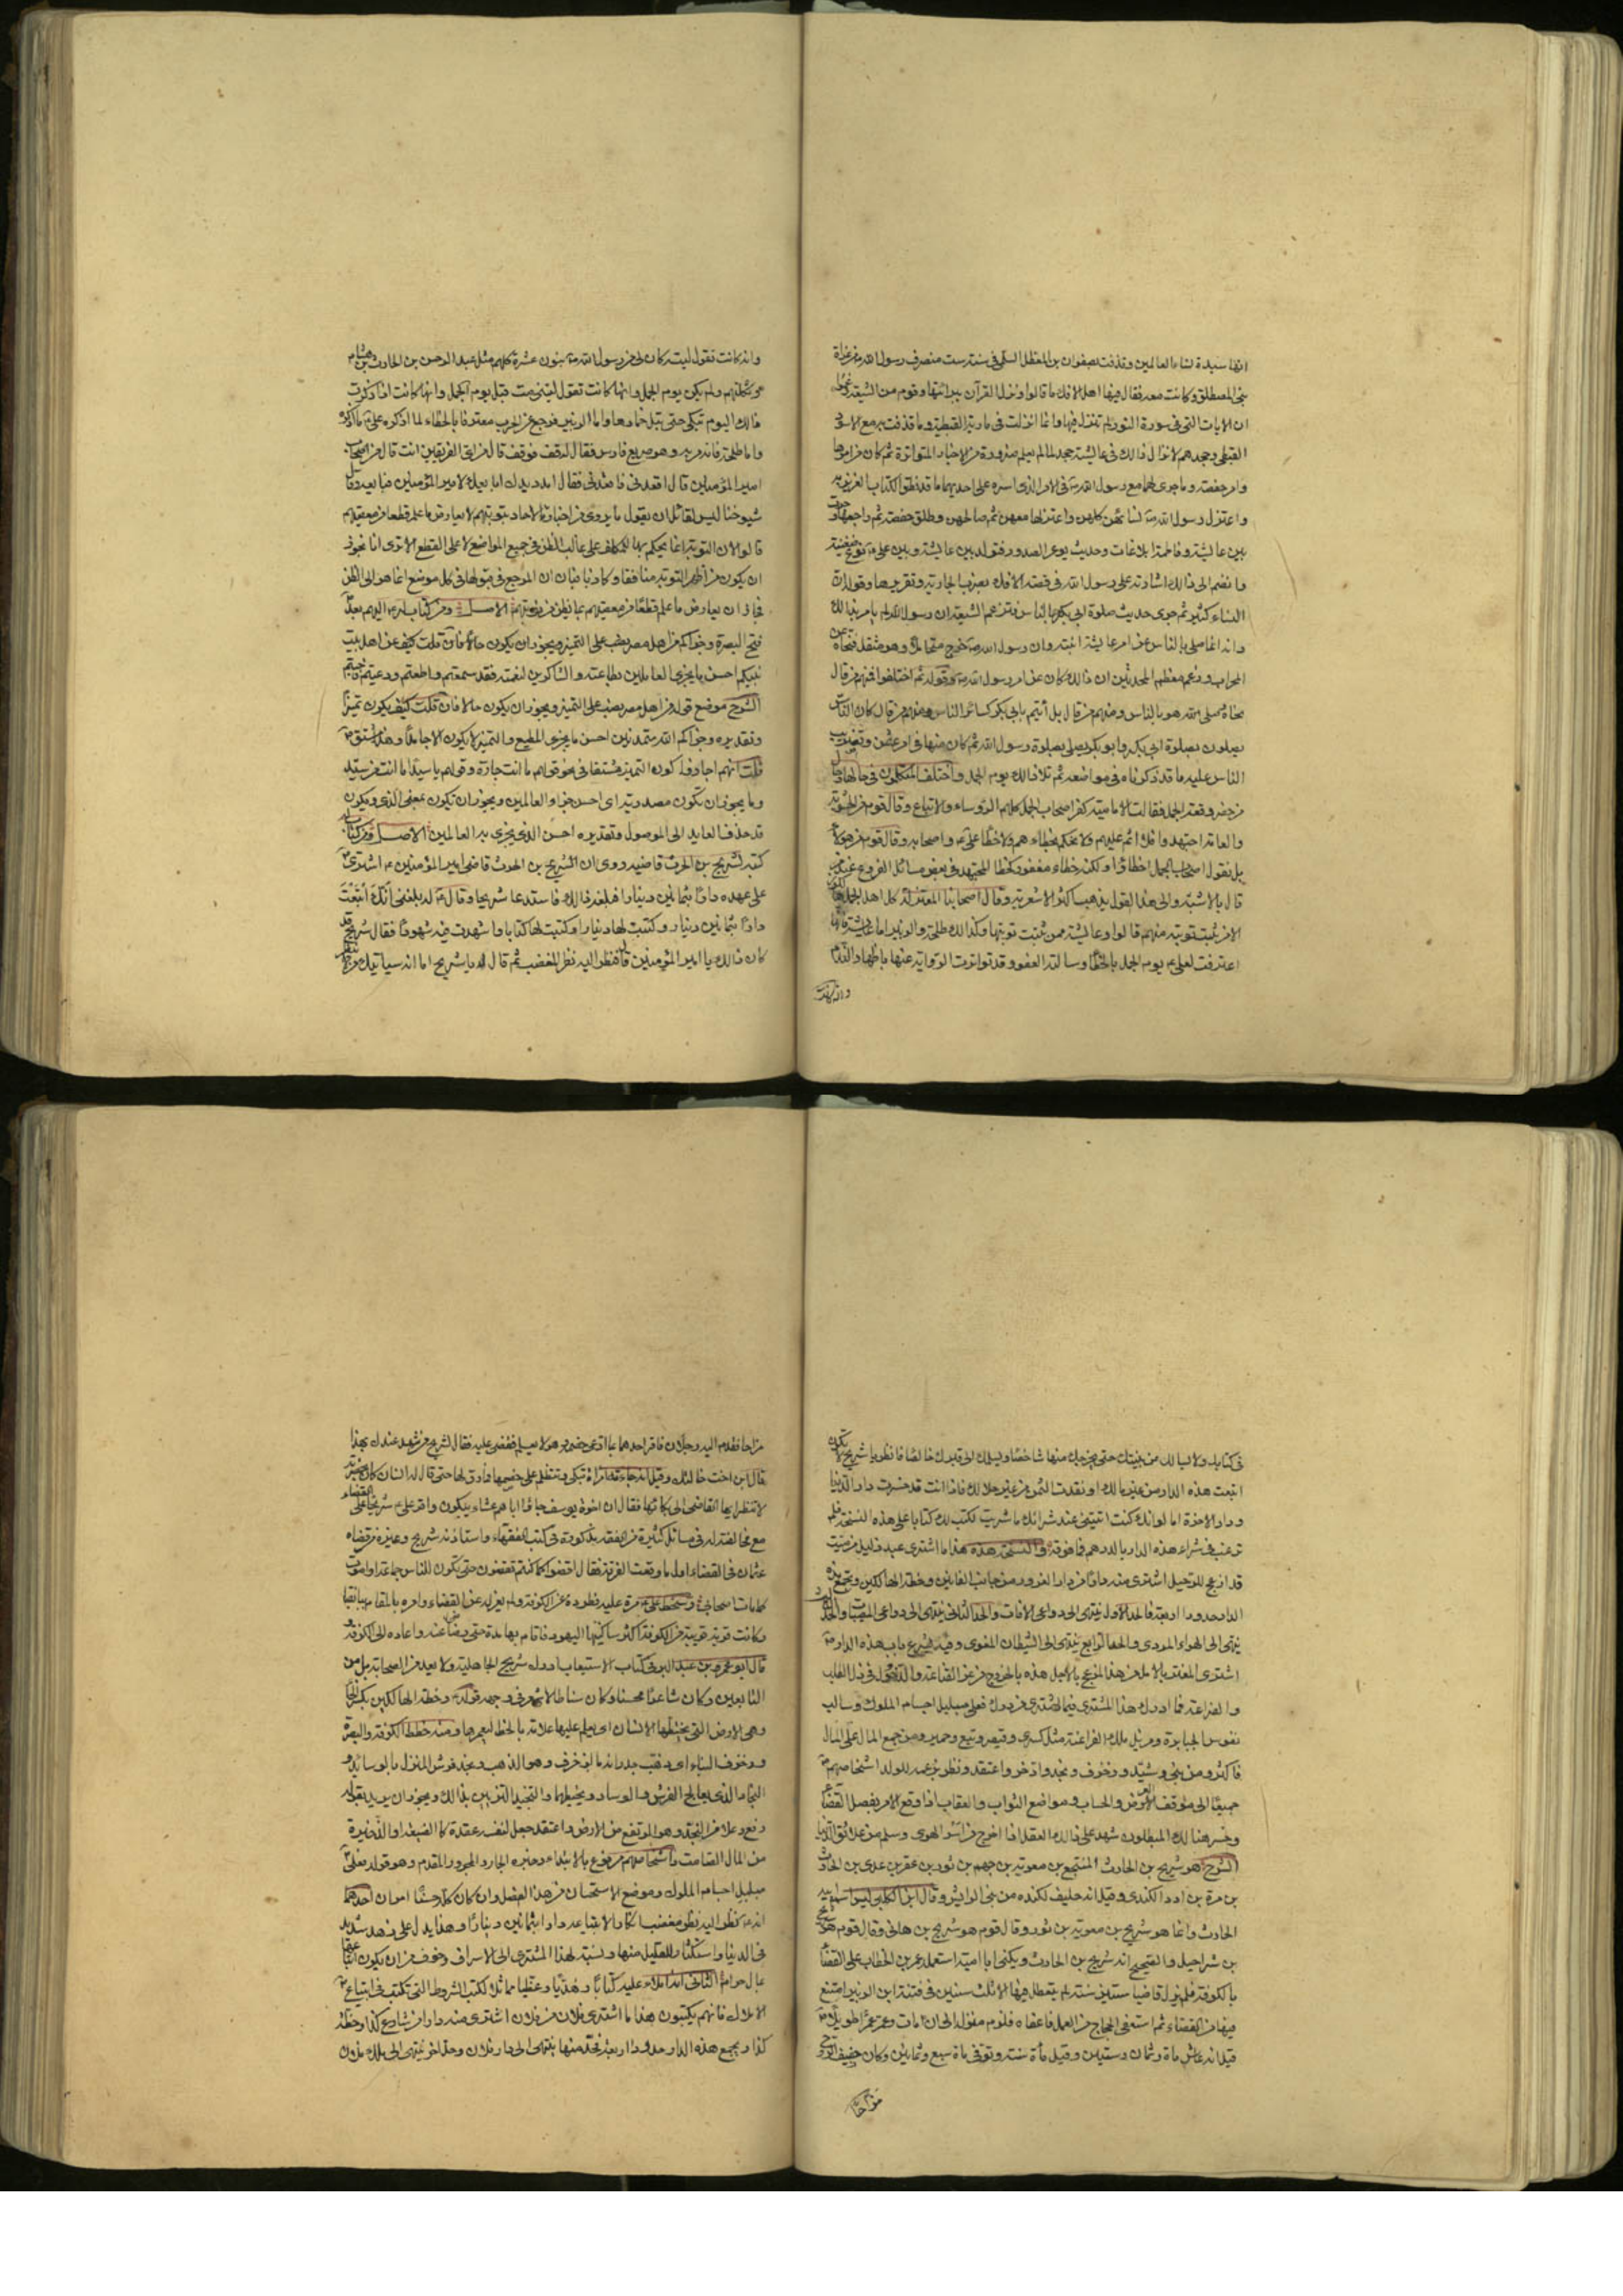 انها سيدة نساء العالمين وقذفت بصفوان بن المعطل السلمى فى سنة ست منصرف رسول الله من غزاة
بنى المصطلق وكانت معه فقال فيها اهل الافك ما قالوا ونزل القرآن ببراءتها وقوم من الشيعة زعموا
ان الايات التى فى سورة النور لم تنزل فيها وانما انزلت فى مارية القبطية وما قذفت به مع الاسود
القبطى وجحدهم لانزال ذلك فى عايشة جحد لما لم يعلم ضرورة من الاخبار المتواترة ثم كان من امرها
وامر حفصة وما جرى لهما مع رسول الله ص فى الامر الذى اسره على احديهما ما قد نطق الكتاب العزيز به
واعتزل رسول الله ص نسائهن كلهن واعتزلها معهن ثم صالحهن وطلق حفصة ثم راجعها وجرت
بين عايشة وفاطمة ابلاغات وحديث يوغر الصدور فتولد بين عايشة وبين على ع نوع ضغينة
وانضم الى ذلك اشارته على رسول الله فى قصة الافك بضرب الجارية وتقريرها وقوله ان
النساء كثير ثم جرى حديث صلوة ابى بكر بالناس فتزعم الشيعة ان رسول الله لم يامر بذلك
وانه انما صلى بالناس عن امر عايشة ابنته وان رسول الله ص خرج متحاملا وهو مثقل فنحاه عن
المحراب وزعم معظم المحدثين ان ذلك كان عن امر رسول الله ص وقوله ثم اختلفوا فمنهم من قال
نحاه وصلى هو بالناس ومنهم من قال بل أيتم بابى بكر كسائر الناس ومنهم من قال كان الناس
يصلون بصلوة ابى بكر وابو بكر يصلى بصلوة رسول الله ثم كان منها فى امر عثمن وتضريب
الناس عليه ما قد ذكرناه فى مواضعه ثم تلا ذلك يوم الجمل واختلف المتكلمون فى حالها وحال
من حضر وقعة الجمل فقالت الامامية كفر اصحاب الجمل كلهم الرؤساء والاتباع وقال قوم من الحشوية
والعامة اجتهدوا فلا اثم عليهم ولا نحكم بخطاءهم ولا خطأ على ع واصحابه وقال قوم من هؤلاء
بل نقول اصحاب الجمل اخطاؤا ولكنه خطاء مغفور كخطأ المجتهد فى بعض مسائل الفروع عند من
قال بالاشبه والى هذا القول يذهب اكثر الاشعرية وقال اصحابنا المعتزلة كل اهل الجمل هالكون
الا من ثبتت توبته منهم قالوا وعايشة ممن ثبتت توبتها وكذلك طلحة والزبير اما عايشة فانها
اعترفت لعلى ع يوم الجمل بالخطأ وسالته العفو وقد تواترت الرواية عنها باظهار الندم
وانه كانت
وانه كانت تقول ليته كان لى من رسول الله ص بنون عشرة كلهم مثل عبد الرحمن بن الحارث بن هشام
وثكلتهم ولم يكن يوم الجمل وانها كانت تقول ليتنى مت قبل يوم الجمل وانها كانت اذا ذكرت
ذلك اليوم تبكى حتى تبل خمارها واما الزبير فرجع عن الحرب معترفا بالخطاء لما اذكره على ع ما اذكره
واما طلحة فانه مر به وهو صريع فارس فقال له قف فوقف قال من اى الفريقين انت قال من اصحاب
امير المؤمنين قال اقعدنى فاقعدنى فقال امدد يدك ابايعك لامير المؤمنين فبايعه وقال
شيوخنا ليس لقائل ان يقول ما يروى من اخبار الاحاد بتوبتهم لا يعارض ما علم قطعا من معصيتهم
قالوا لان التوبة انما يحكم بها للمكلف على غالب الظن فى جميع المواضع لا على القطع الا ترى انا نجوز
ان يكون من اظهر التوبة منافقا وكاذبا فبان ان المرجع فى قبولها فى كل موضع انما هو الى الظن
فجاز ان يعارض ما علم قطعا من معصيتهم بما يظن من توبتهم الاصل ومن كتاب له ع اليهم بعد
فتح البصرة وجزاكم من اهل مصر نصب على التميز ويجوز ان يكون حالا فان قلت كيف عن اهل بيت
نبيكم احسن ما يجزى العاملين بطاعته والشاكرين لنعمته فقد سمعتم واطعتم ودعيتم فاجبتم
الشرح موضع قوله من اهل مصر نصب على التميز ويجوز ان يكون حالا فان قلت كيف يكون تميزا
وتقديره وجزاكم الله متمدنين احسن ما يجزى المطيع والتميز لا يكون الا جامدا وهذا مشتق
قلت انهم اجازوا كون التميز مشتقا فى نحو قولهم ما انت جارة وقولهم يا سيدا ما انت من سيد
وما يجوز ان تكون مصدرية اى احسن جزاء العالمين ويجوز ان تكون بمعنى الذى ويكون
قد حذف العايد الى الموصول وتقديره احسن الذى يجزى به العالمين الاصل ومن كتاب له
كتبه لشريح بن الحرث قاضيه روى ان الشريح بن الحرث قاضى امير المؤمنين ع اشترى
على عهده دارا بثمانين دينارا فبلغه ذلك فاستدعا شريحا وقال ع له بلغنى انك ابتعت
دارا بثمانين دينار وكتبت لها دينارا وكتبت لها كتابا واشهدت فيه شهودا فقال شريح قد
كان ذلك يا امير المؤمنين قال فنظر اليه نظر المغضب ثم قال له يا شريح اما انه سياتيك من لا ينظر
فى كتابك ولا يسالك من بينتك حتى يخرجك منها شاخصا ويسلمك الى قبرك خالصا فانظر يا شريح لا تكون
ابتعت هذه الدار من غير مالك او نقدت الثمن من غير حلالك فاذا انت قد خسرت دار الدنيا
ودار الاخرة اما لو انك كنت اتيتنى عند شرائك ما شريت لكتبت لك كتابا على هذه النسخة فلم
ترغب فى شراء هذه الدار بالدرهم فما فوقه والنسخة هذه هذا ما اشترى عبد ذليل من ميت
قد ازعج للرحيل اشترى منه دارا من دار الغرور من جانب الفانين وخطة الهالكين وتجمع هذه
الدار حدود اربعة فالحد الاول ينتهى الى دواعى الافات والحد الثانى ينتهى الى دواعى المصيبات والحد الثالث
ينتهى الى الهواء المردى والحد الرابع ينتهى الى الشيطان المغوى وفيه يشرع باب هذه الدار
اشترى المغتر بالامل من هذا المزعج بالاجل هذه بالخروج من عز القناعة والدخول فى ذل الطلب
والضراعة فما ادرك هذا المشترى فيما اشترى من درك فعلى مبلبل اجسام الملوك وسالب
نفوس الجبابرة ومزيل ملك الفراعنة مثل كسرى وقيصر وتبع وحمير ومن جمع المال على المال
فاكثر ومن بنى وشيد وزخرف ونجد وادخر واعتقد ونظر بزعمه للولد اشخاصهم
جميعا الى موقف العرض والحساب ومواضع الثواب والعقاب اذا وقع الامر بفصل القضاء
وخسر هنالك المبطلون شهد على ذلك العقل اذا اخرج من اسر الهوى وسلم من علائق الدنيا
الشرح هو شريح بن الحارث المنتجع بن معوية بن جهم بن ثور بن عفير بن عدى بن الحارث
بن مرة بن ادد الكندى وقيل انه حليف لكنده من بنى الرايش وقال ابن الكلبى ليس اسم ابيه
الحارث وانما هو شريح بن معوية بن ثور وقال قوم هو شريح بن هانى وقال قوم هو شريح
بن شراحيل والصحيح انه شريح بن الحارث ويكنى ابا امية استعمله عمر بن الخطاب على القضاء
بالكوفة فلم يزل قاضيا ستين سنة لم يتعطل فيها الا ثلث سنين فى فتنة ابن الزبير امتنع
فيها من القضاء ثم استعفى الحجاج من العمل فاعفاه فلزم منزله الى ان مات وعمر عمرا طويلا
قيل انه عاش ماة وثمان وستين وقيل مأة سنة وتوفى ماة سبع وثمانين وكان خفيف الروح
مزاحا
مزاحا فقدم اليه رجلان فاقر احدهما بما ادعى خصمه وهو لا يعلم فقضى عليه فقال لشريح من شهد عندك بهذا
قال ابن اخت خالتك وقيل انه جاءته امراة تبكى وتتظلم على خصمها فما رق لها حتى قال له انسان كان بحضرته
لا تنظر ايها القاضى الى بكائها فقال ان اخوة يوسف جاؤا اباهم عشاء يبكون واقر على ع شريحا على القضاء
مع مخالفته له فى مسائل كثيرة من الفقه مذكورة فى كتب الفقهاء واستاذنه شريح وغيره من قضاة
عثمان فى القضاء اول ما وقعت الفرقة فقال اقضوا كما كنتم تقضون حتى تكون للناس جماعة او اموت
كما مات اصحابى وسخط على ع مرة عليه فطرده عن الكوفة ولم يعزله عن القضاء وامره بالمقام ببانقيا
وكانت قرية قريبة من الكوفة اكثر ساكنيها اليهود فاقام بها مدة حتى رضى عنه واعاده الى الكوفة و
قال ابو عمر بن عبد البر فى كتاب الاستيعاب ادرك شريح الجاهلية ولا يعد من الصحابة بل من
التابعين وكان شاعرا محسنا وكان سناطا لا شعر فى وجهه قوله ع وخطة الهالكين بكسر الخاء
وهى الارض التى يختطها الانسان اى يعلم عليها علامة بالخط ليعمرها ومنه خطط الكوفة والبصرة
وزخرف البناء اى ذهب جدرانه بالزخرف وهو الذهب ونجد فرش المنزل بالوسائد و
النجاد الذى يعالج الفرش والوسادة ويخيطها والتنجيد التزيين بذلك ويجوز ان يريد بقوله
رفع وعلا من النجد وهو المرتفع من الارض واعتقد جعل لنفسه عقدة كالضيعة او الذخيرة
من المال الصامت واشخاصهم مرفوع بالابتداء وخبره الجار والمجرور المقدم وهو قوله فعلى
مبلبل اجسام الملوك وموضع الاستحسان من هذا الفصل وان كان كله حسنا امران احدهما
انه ع نظر اليه نظر مغضب انكارا لابتياعه دارا بثمانين دينارا وهذا يدل على زهد شديد
فى الدنيا واستكثار للقليل منها ونسبة لهذا المشترى الى الاسراف وخوف من ان يكون ابتاعها
بمال حرام الثانى انه املاء عليه كتابا زهديا وعظيا مماثلا لكتب الشروط التى تكتب فى ابتياع
الاملاك فانهم يكتبون هذا ما اشترى فلان من فلان اشترى منه دارا من شارع كذا وخطة
كذا ويجمع هذه الدار حدود اربعة فحد منها ينتهى الى دار فلان وحد اخر ينتهى الى ملك فلان